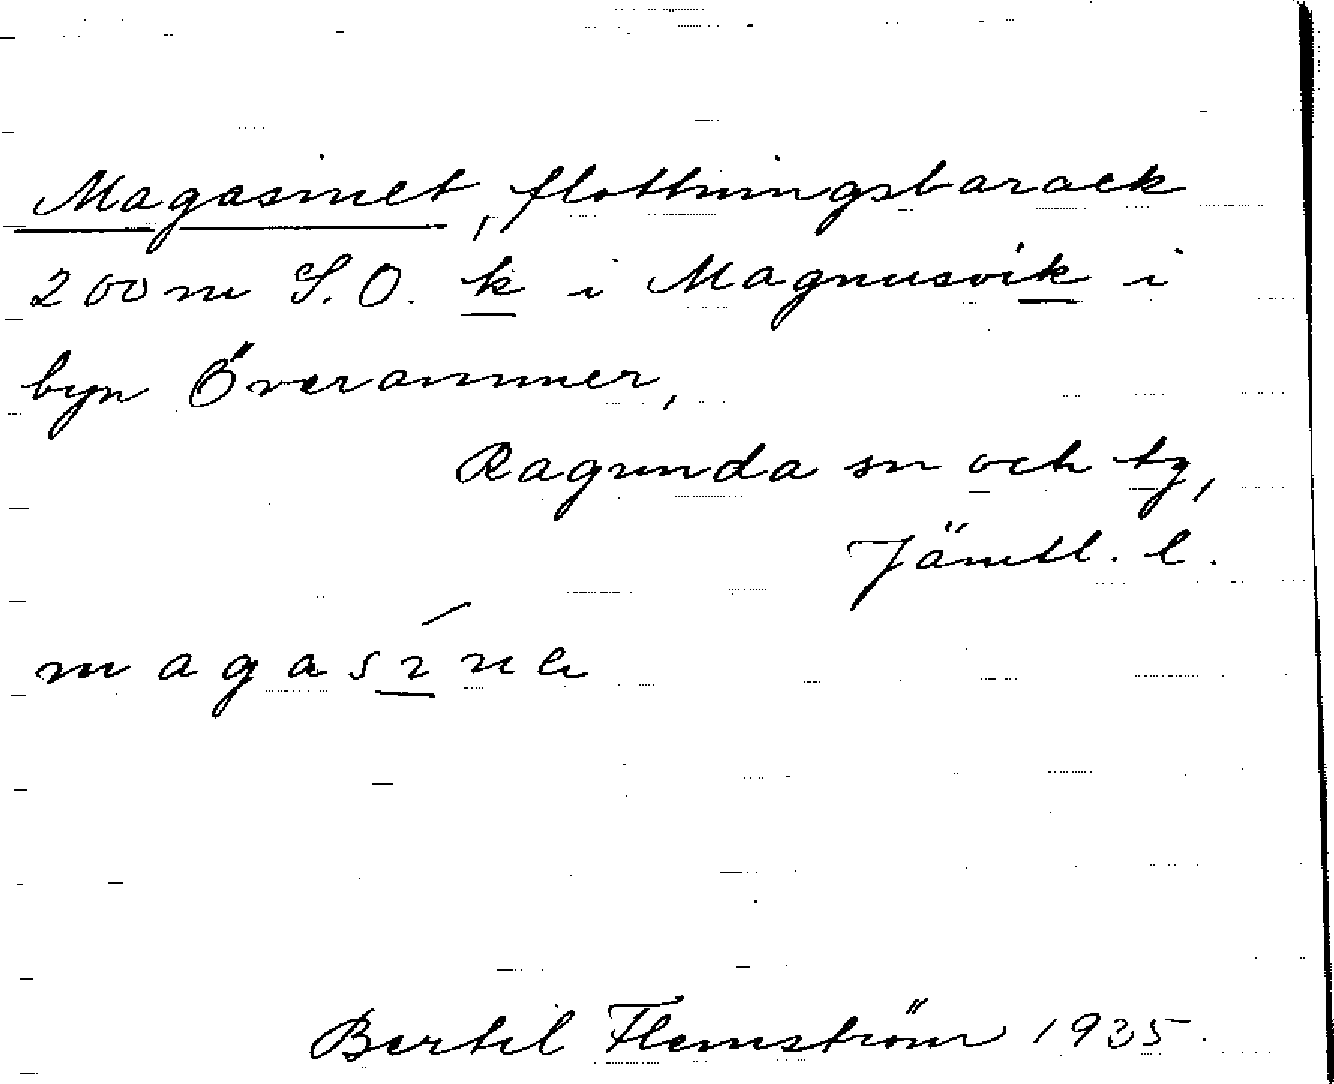 Magasinet, flottningsbarack
200 m S.O. k i Magnusvik i
byn Överammer,
Ragunda sn och tg,
Jämtl. l.
magasína
Bertil Flemström 1935.